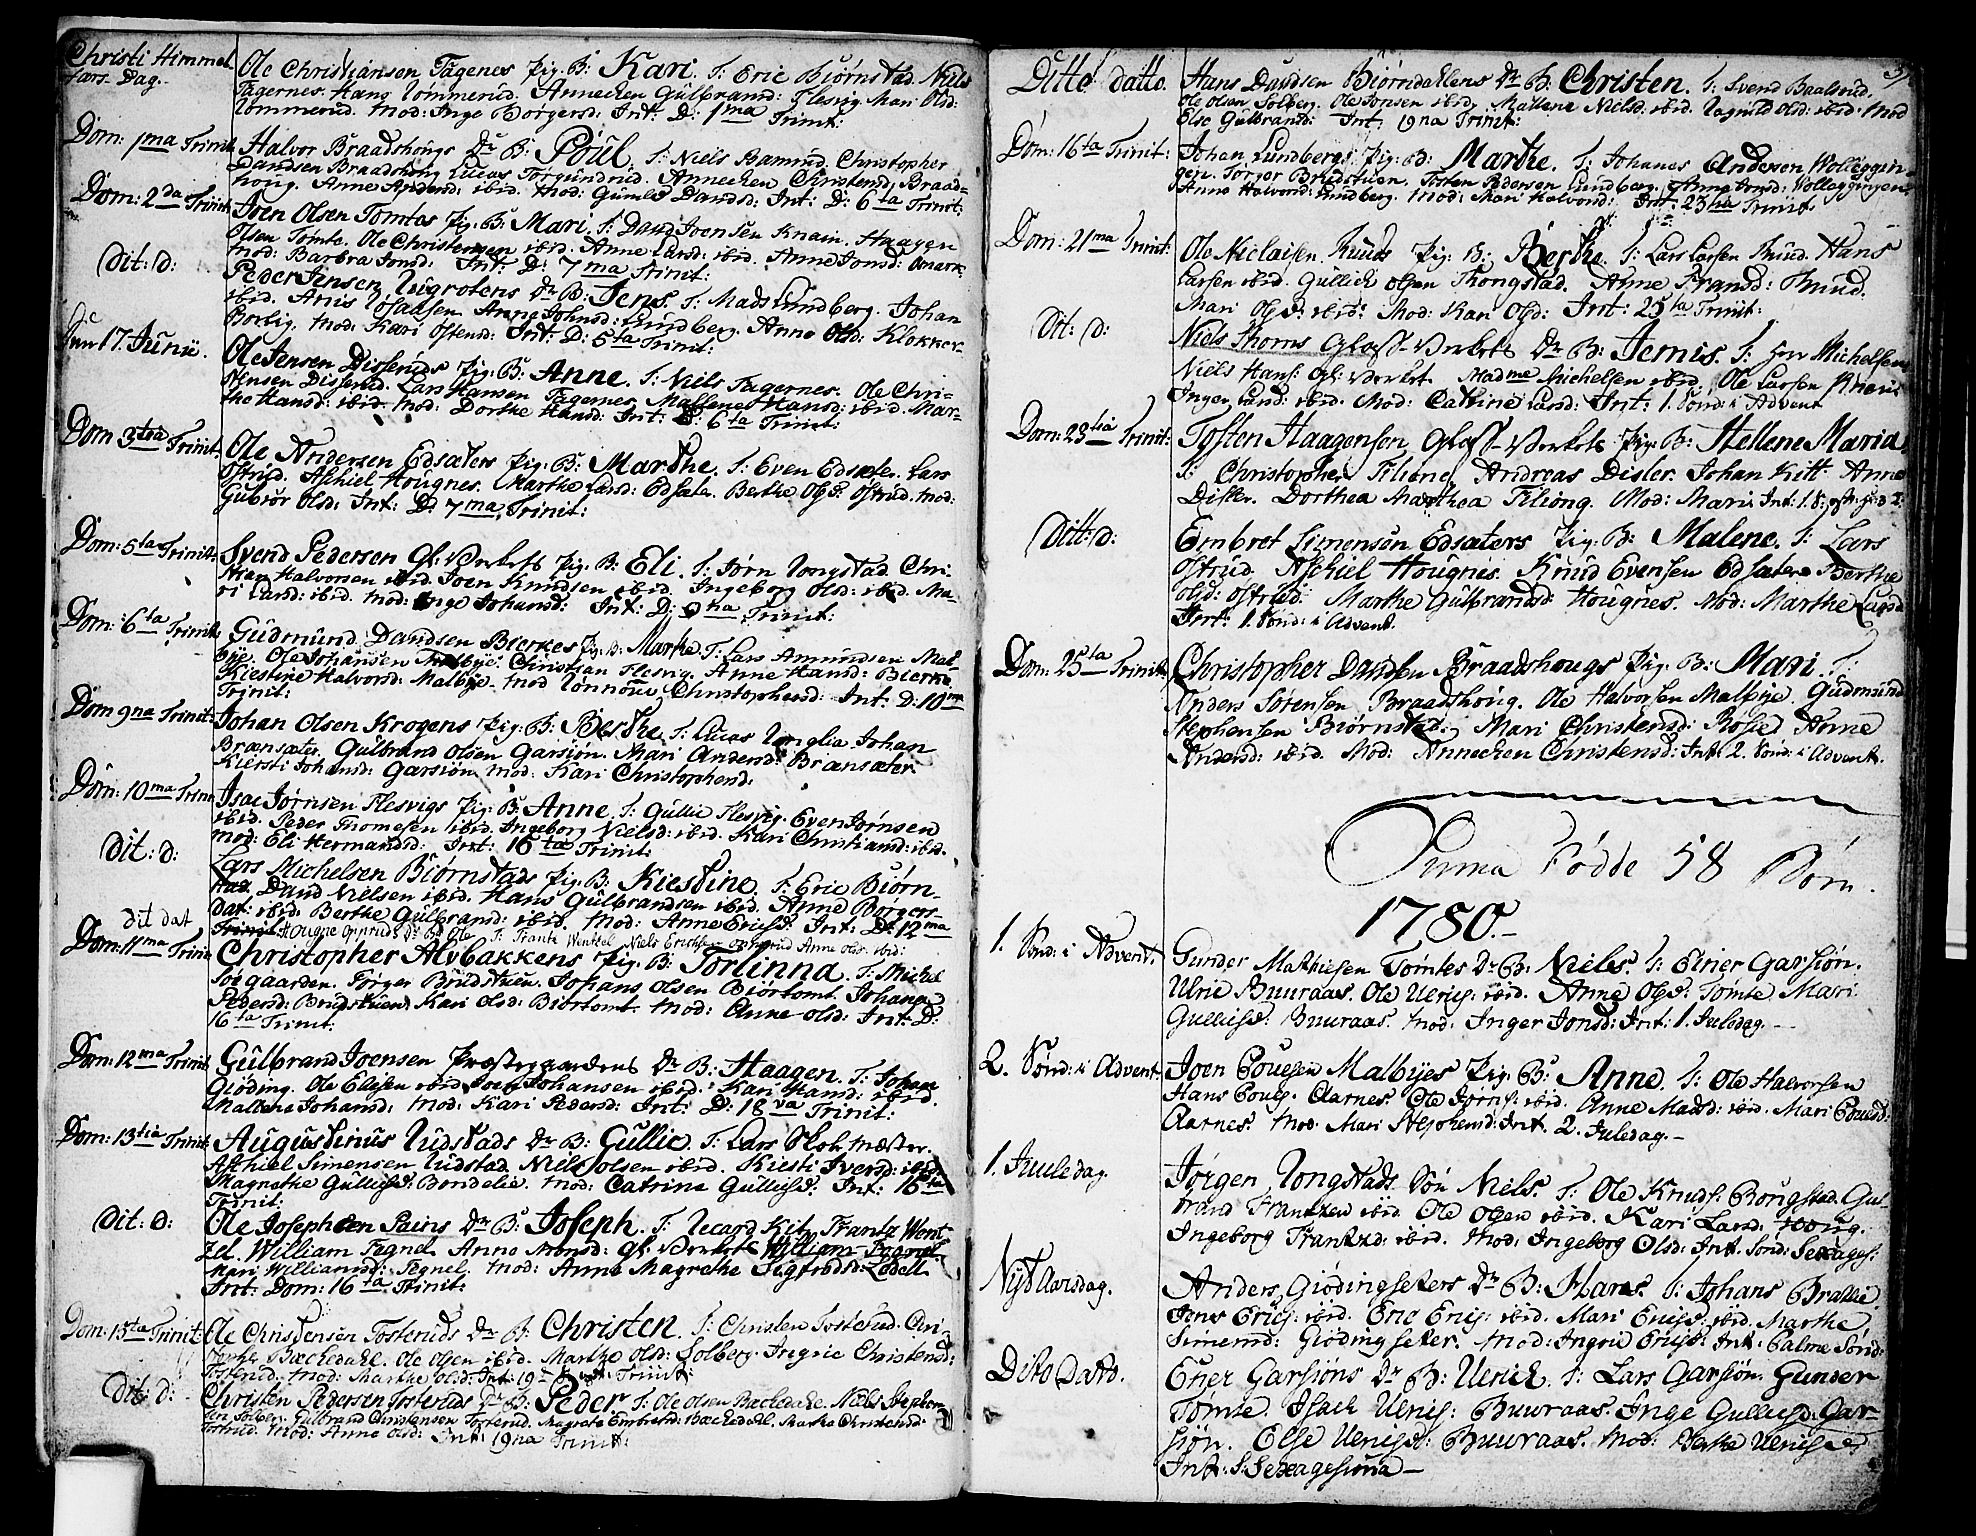 Christi Himmel
fars Dag.
Ole Christiansen Tagenes Pig. B: Kari. T: Eric Biørnstad. Niels
Tagernes. Hans Tømmerud. Annechen Gulbrand: Flesvig. Mari Olsd:
Tømmerud. Mod: Inge Børgersd: Int: D: 1ma Trinit:
Dom: 1ma Trinit:
Halvor Braadshougs Dr. B: Poul. T: Niels Bamrud. Christopher
Davidsen Braadshoug. Lucas Torgundrud. Annechen Christensd: Braads-
houg. Anne Andersd: ibid. Mod: Gunild Davidsd: Int: D: 6ta Trinit:
Dom: 2da Trinit:
Joen Olsen Tomtas Pig. B: Mari. T: David Joensen Knain. Haagen
Olsen Tømte. Ole Christensen ibid. Anne Larsd: ibid. Anne Jonsd:
Mod: Barbra Jonsd: Int: D: 7ma Trinit:
Dit: D:
Peder Jensen Dr. B: Jens. T: Mads Lundberg. Johan
ibid. Anne Johnsd: Lundberg. Anne Olsd: Klokker-
Bolig. Mod: Kari Ostensd: Int: D: 5ta Trinit:
17. Junii.
Ole Jensen Disserud Pig. B: Anne. T: Niels Tagernes. Ole Chri-
stensen Disserud. Lars Hansen Tagernes. Mallene Hansd: ibid. Mar-
the Hansd: ibid. Mod: Dorthe Hansd: Int: D: 6ta Trinit:
Dom 3tia Trinit:
Ole Andersen Edsæters Pig. B: Marthe. T: Even Edsæter. Lars
Ostrud. Aschiel Hougnes. Marthe Larsd: Edsæter. Berthe Olsd: Ostrud. Mod:
Gubiør Olsd: Int: D: 7ma Trinit:
Dom: 5ta Trinit:
Svend Pedersen Gl: Verkets Pig. B: Eli. T: Jørn Tongstad. Chri-
stian Halvorsen ibid. Joen Knudsen ibid. Ingeborg Olsd: ibid. Ma-
ri Larsd: ibid. Mod: Inge Johansd: Int: D: 9na Trinit:
Dom: 6ta Trinit:
Gudmund Davidsen Bierkes Pig. B: Marthe. T: Lars Amundsen Mal-
bye. Ole Johansen Malbye. Christian Flesvig. Anne Hansd: Bierke.
Kiestine Halvorsd: Malbye. Mod: Christophersd: Int: D: 10ma
Trinit:
Dom 9na Trinit:
Johan Olsen Krogens Pig: B: Berthe. T: Lucas Johan
Brænsæter. Gulbrand Olsen Garsiøn. Mari Andersd: Brænsæter
Kiersti Johansd: Garsiøn. Mod: Kari Christophersd:
Dom: 10ma Trinit
Isac Jørnsen Flesvigs Pig. B: Anne. T: Gullic Flesvig. Even Jørnsen
ibid. Peder Thomesen ibid. Ingeborg Nielsd: ibid. Kari Christiansd: ibid.
Mod: Eli Hermandsd: Int: 16ta Trinit:
Dit: D:
Lars Michelsen Biørnstads Pig. B: Kiestine. T: Eric Biørn-
stad. David Nielsen ibid. Hans Gulbrandsen ibid. Anne Børgers-
dat: ibid. Berthe Gulbransd: ibid. Mod: Anne Ericsd: Int: D: 12ma
Trinit:
dit dat
Hougne Opruds Dr. B: Ole T: Frantz Wentzel Niels Erichsen Anne Olsd: ibid:
Dom: 11ma Trinit
Christopher Alvbakkens Pig. B: Torlinna. T: Michel
Soegaarden. Tørger Brudstuen. Johans Olsen Biørtomt. Johanne
Pedersd: Brudstuen. Kari Olsd: Biørtomt. Mod: Anne Olsd: Int: D:
16ta Trinit:
Dom: 12ma Trinit
Gulbrand Joensen Præstegaardens Dr. B: Haagen. T: Johan
Giøding. Ole Elefsen ibid. Joen Johansen ibid. Kari Hansd: ibid.
Mallene Johansd: Mod: Kari Pedersd: Int: D: 18va Trinit:
Dom: 13tia Trinit:
Augustinus Rudstads Dr. B: Gullic. T: Lars Skole Mæster.
Aschiel Simensen Rudstad. Niels Olsen ibid. Kiesti Iversd: ibid.
Magrethe Gullicsd: Bondelie. Mod: Catrine Gullicsd: Int: 16ta
Trinit:
Dit: D:
Ole Josephsen Pains Dr. B: Joseph. T: Ricard Kit. Frantz Went-
zel. William Fegnel. Anne Monsd: Gl: Verkets
Mari Williamsd: Fegnel. Mod: Anne Magrethe Sigfredsd: Ledell
Int: Dom: 16ta Trinit:
Dom: 15ta Trinit:
Ole Christensen Tosteruds Dr. B: Christen T: Christen Tosterud. Chri-
stopher Bachedahl. Ole Olsen ibid. Marthe Olsd: Solberg. Ingrie Christensd:
Tosterud. Mod: Marthe Olsd: Int: 19na Trinit:
Dit: D:
Christen Pedersen Tosteruds Dr. B: Peder T: Ole Olsen Bachedahl. Niels Stephen-
sen Solberg. Gulbrand Christensen Tosterud. Magrete Embretsd: Bachedahl. Marthe Christensd:
Tosterud. Mod: Anne Olsd: Int: 19na Trinit:
Ditto datto.
Hans Davidsen Biørndahlens Dr. B: Christen. T: Svend Baalsrud.
Ole Olsen Solberg. Ole Jonsen ibid. Mallene Nielsd: ibid. Ragnild Olsd: ibid. Mod
Else Gulbransd: Int: 19na Trinit:
Dom: 16ta Trinit:
Johan Lundbergs Pig: B: Marthe. T: Johanes Andersen Wollæggin-
gen. Torger Brudstuen. Tosten Pedersen Lundberg. Anne Jonsd: Wollæggingen.
Anne Halvorsd: Lundberg. Mod: Mari Halvorsd: Int: 23tia Trinit.
Dom: 21ma Trinit:
Ole Niclaisen Ruuds Pig: B: Berthe. T: Lars Larsen Ruud. Hans
Larsen ibid. Gullich Olsen Trongstad. Anne Fransd: Ruud.
Mari Olsd: ibid: Mod: Kari Olsd: Int: 25ta Trinit:
Dit: D:
Niels Thorns Glass-Verkets Dr. B: Jernis. T: Hr. Michelsen
Niels Hans: Gl: Verket. Madme Michelsen ibid. Ole Larsen Knari:
Inger Lund: ibid. Mod: Catrine Larsd: Int: 1. Sønd: i Advent
Dom: 23tia Trinit:
Tosten Haagensen Glass-Verkets Pig. B: Hellene Maria
T: Christopher Filiong. Andreas Disler. Johan Kitt. Anne
Disler. Dorthea Marthea Filiong. Mod: Mari. Int: 1. S:
Ditt: D:
Embret Simensen Edsæters Pig: B: Malene. T: Lars
Ostrud. Aschiel Hougnes. Knud Evensen Edsæter. Berthe
Olsd: Ostrud: Marthe Gulbransd: Hougnes. Mod: Marthe Larsd:
Int: 1. Sønd: i Advent.
Dom: 25ta Trinit:
Christopher Davidsen Braadshougs Pig: B: Mari. T:
Anders Sørensen Braadshoug. Ole Halvorsen Malbye. Gudmund
Stephensen Biørnstad. Mari Christensd: Anne
Andersd: ibid. Mod: Annechen Christensd: Int: 2. Sønd: i Advent.
Summa Fødde 58 Børn.
1780.
1. Sønd: i Advent.
Gunder Mathiesen Tømtes Dr. B: Niels. T: Einer Garsiøn.
Ulric Buuraas. Ole Ulrics: ibid. Anne Olsd: Tømte. Mari
Gullicsd: Buuraas. Mod: Inger Jonsd: Int: 1. Juledag.
2. Sønd: i Advent.
Joen Pouelsen Malbyes Pig: B: Anne. T: Ole Halvorsen
Hans Pouels: Aarnes. Ole Jørns: ibid. Anne Madsd: ibid. Mari Pouelsd:
Aarnes. Mod: Mari Stephensd: Int. 2. Juledag.
1. Juuledag.
Jørgen Tongstads Søn Niels. T: Ole Knuds: Bougstad. Gul-
brand Frantzen ibid. Ole Olsen ibid. Kari Larsd: Houg.
Ingeborg Frantzsd: ibid. Mod: Ingeborg Olsd: Int. Sønd: Sexages:
Nÿdt Aarsdag.
Anders Giødingseters Dr. B: Hans. T: Johans Brattlie.
Jens Erics: ibid. Eric Erics: ibid. Mari Ericsd: ibid. Marthe
Simensd: Giødingseter. Mod: Ingrie Ericsd: Int: Palme Sønd:
Dito Dato.
Einer Garsiøns Dr. B: Ulrich. T: Lars Garsiøn. Gunder
Tømte. Isach Ulrics: Buuraas. Inge Gullicsd: Gar-
siøn. Else Ulricsd: Buuraas. Mod: Berthe Ulricsd:
Int: S: Sexagesima